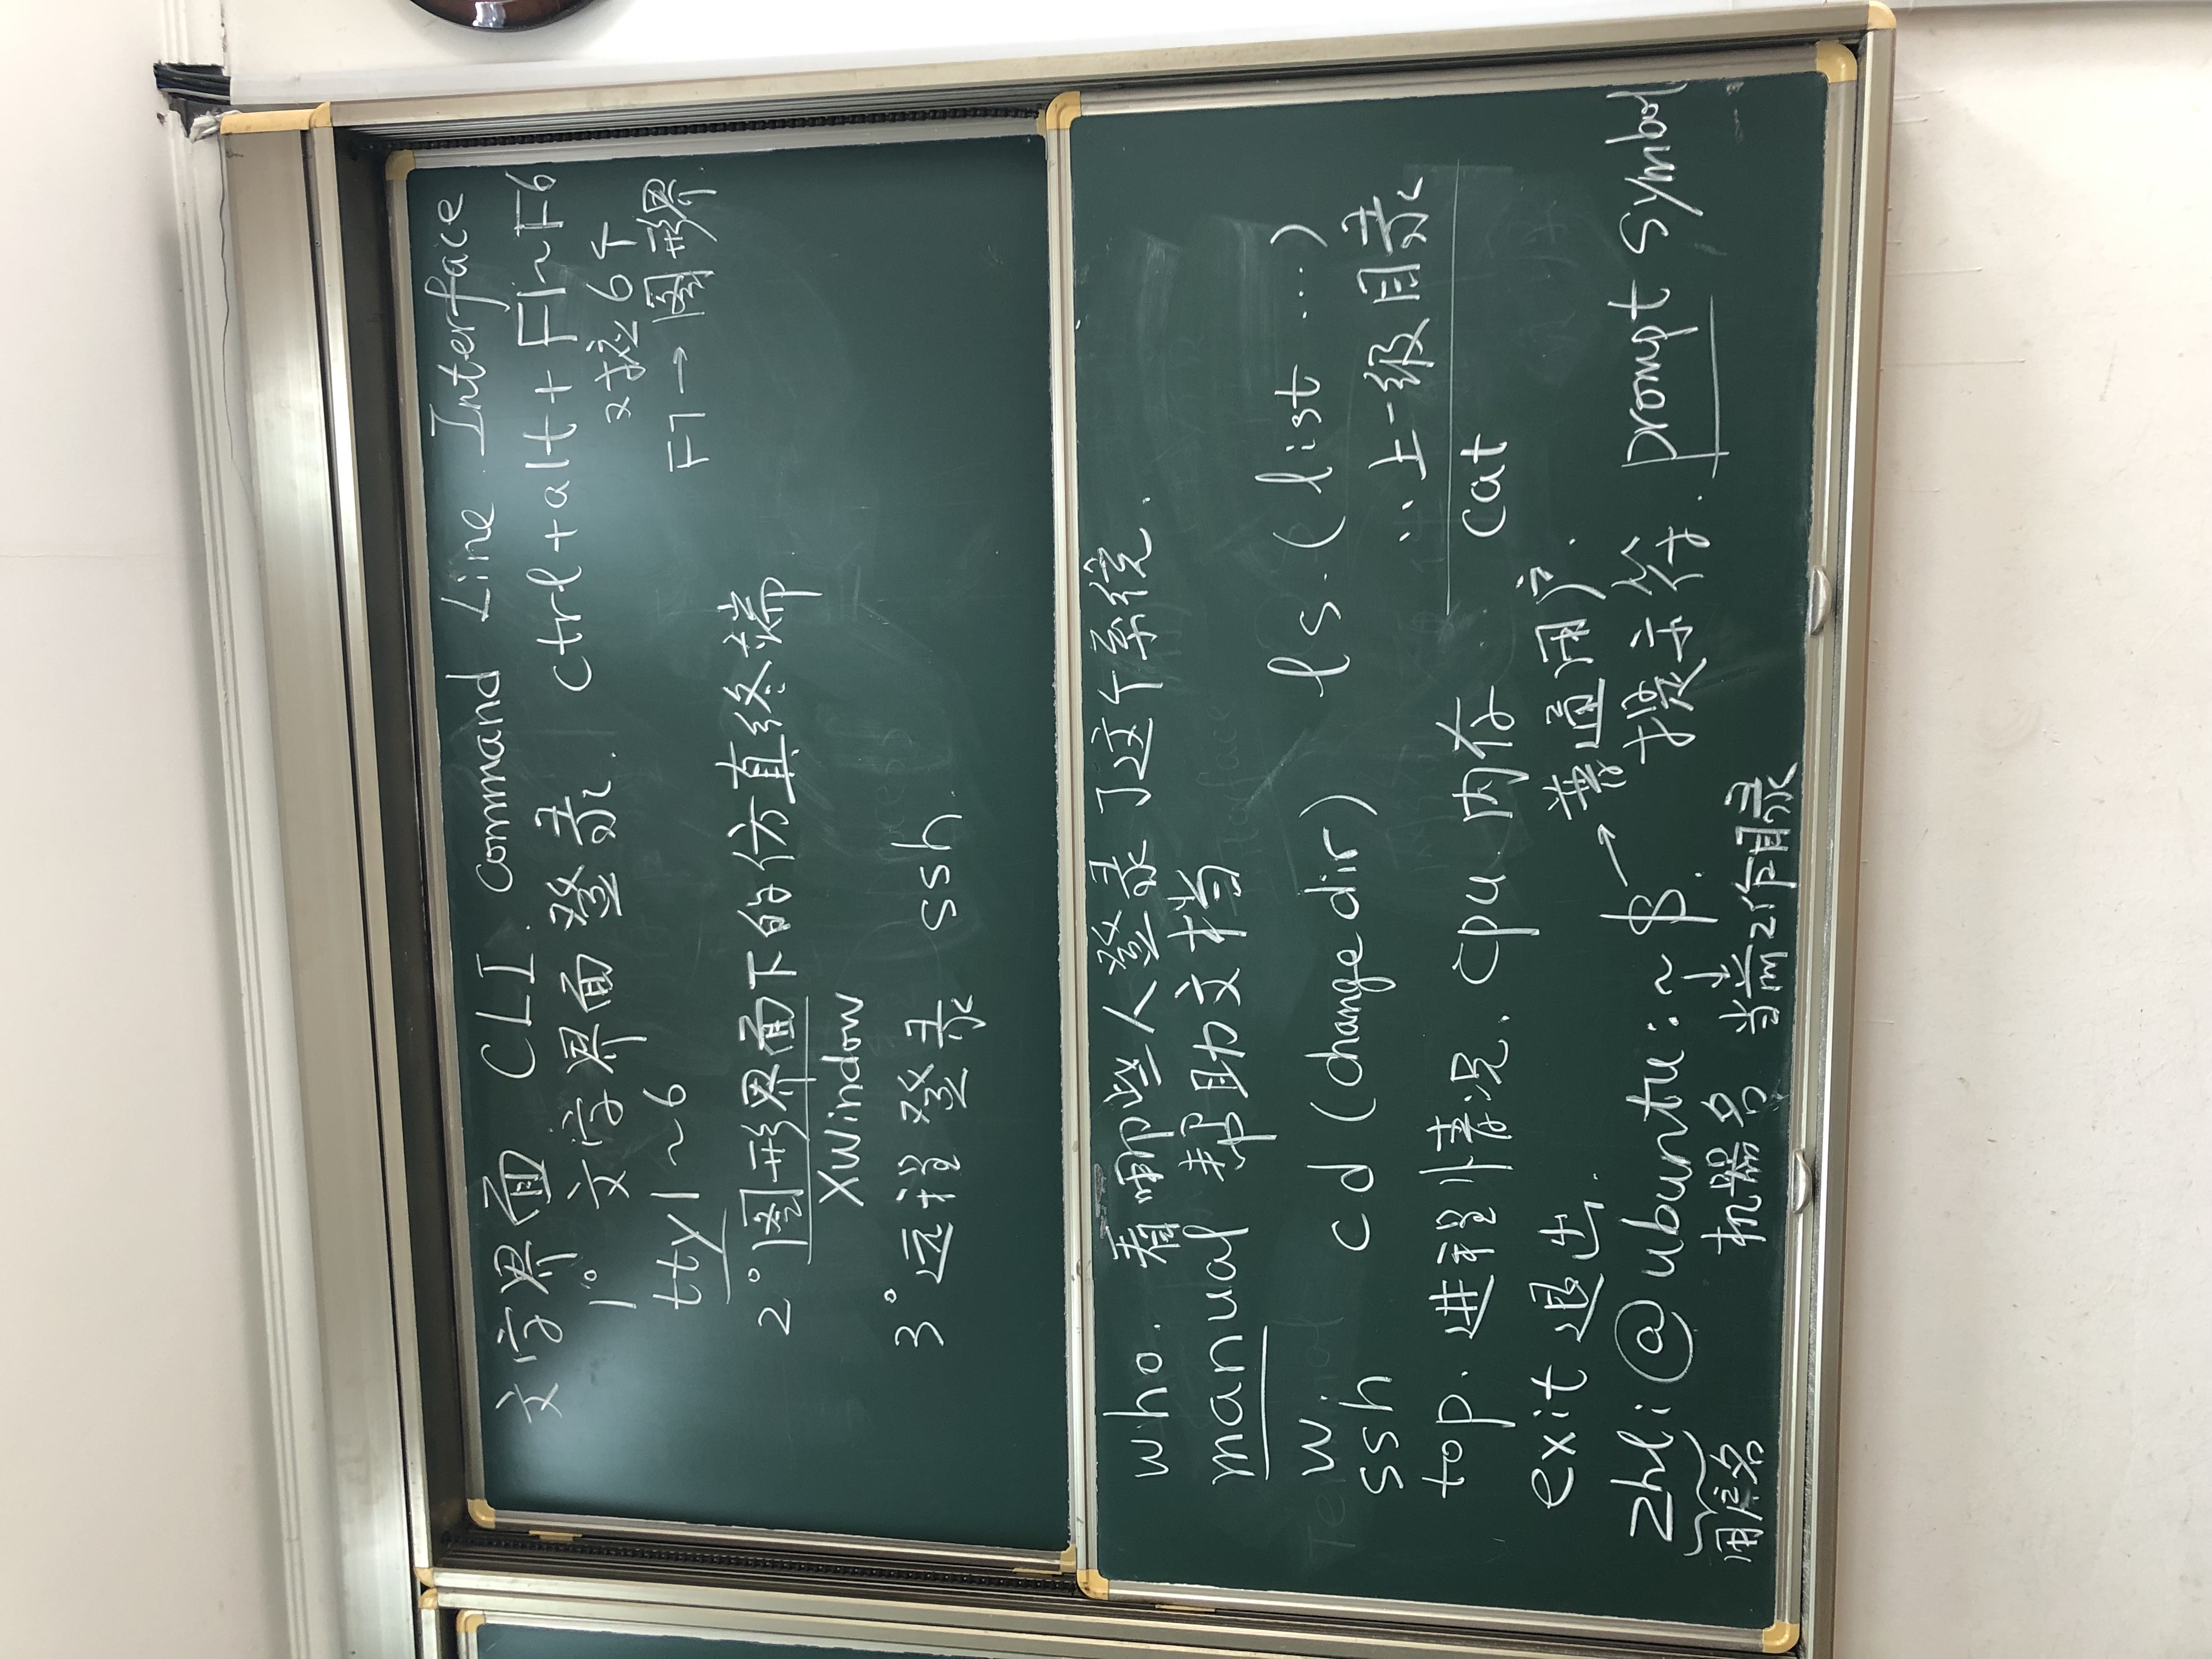 文字界面 CLI. Command Line Interface
1° 文字界面登录. ctrl+alt+F1~F6
tty1~6 2按6个
F7→图形界
2° 图形界面下的仿真终端
XWindow
3° 远程登录 ssh
who. 看哪些人登录了这个系统.
manual 帮助文档
w
ssh cd (change dir) ls. (list ...)
.. 上一级目录
top. 进程情况. cpu 内存 cat
exit 退出. 普通用户.
zhl: @ ubuntu: ~ $ → 提示符. prompt symbol
用户名 机器名 当前工作目录